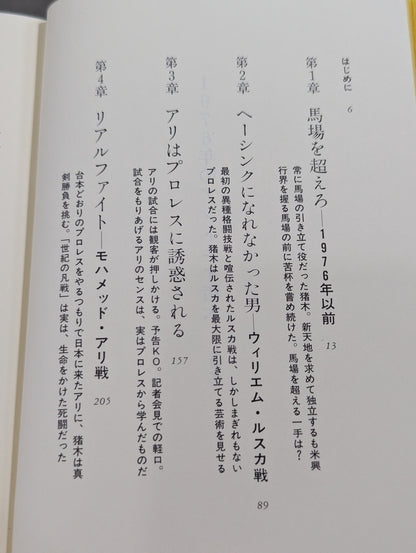 はじめに 6
第1章 馬場を超えろ――1976年以前 13
常に馬場の引き立て役だった猪木。新天地を求めて独立するも米興
行界を握る馬場の前に苦杯を嘗め続けた。馬場を超える一手は?
第2章 ヘーシンクになれなかった男――ウィリエム・ルスカ戦 89
最初の異種格闘技戦と喧伝されたルスカ戦は、しかしまぎれもない
プロレスだった。猪木はルスカを最大限に引き立てる芸術を見せる
第3章 アリはプロレスに誘惑される 157
アリの試合には観客が押しかける。予告KO。記者会見での軽口。
試合をもりあげるアリのセンスは、実はプロレスから学んだものだ
第4章 リアルファイト――モハメッド・アリ戦 205
台本どおりのプロレスをやるつもりで日本に来たアリに、猪木は真
剣勝負を挑む。「世紀の凡戦」は実は、生命をかけた死闘だった